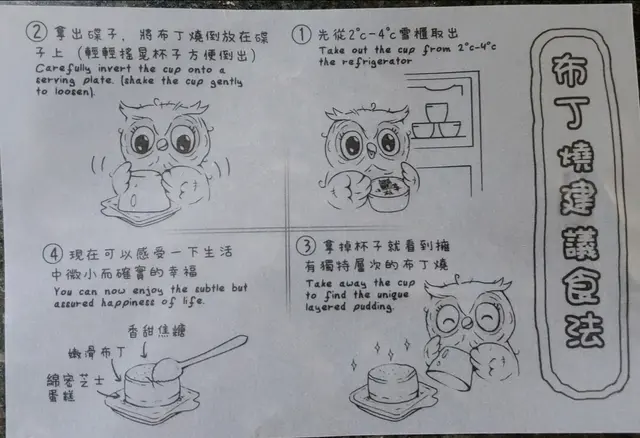 布丁燒建議食法
① 先從2°c-4°c雪櫃取出
Take out the cup from 2°c-4°c
the refrigerator
② 拿出碟子，將布丁燒倒放在碟
子上（輕輕搖晃杯子方便倒出）
Carefully invert the cup onto a
serving plate. (shake the cup gently
to loosen).
③ 拿掉杯子就看到擁
有獨特層次的布丁燒
Take away the cup
to find the unique
layered pudding.
④ 現在可以感受一下生活
中微小而確實的幸福
You can now enjoy the subtle but
assured happiness of life.
香甜焦糖
嫩滑布丁
綿密芝士
蛋糕